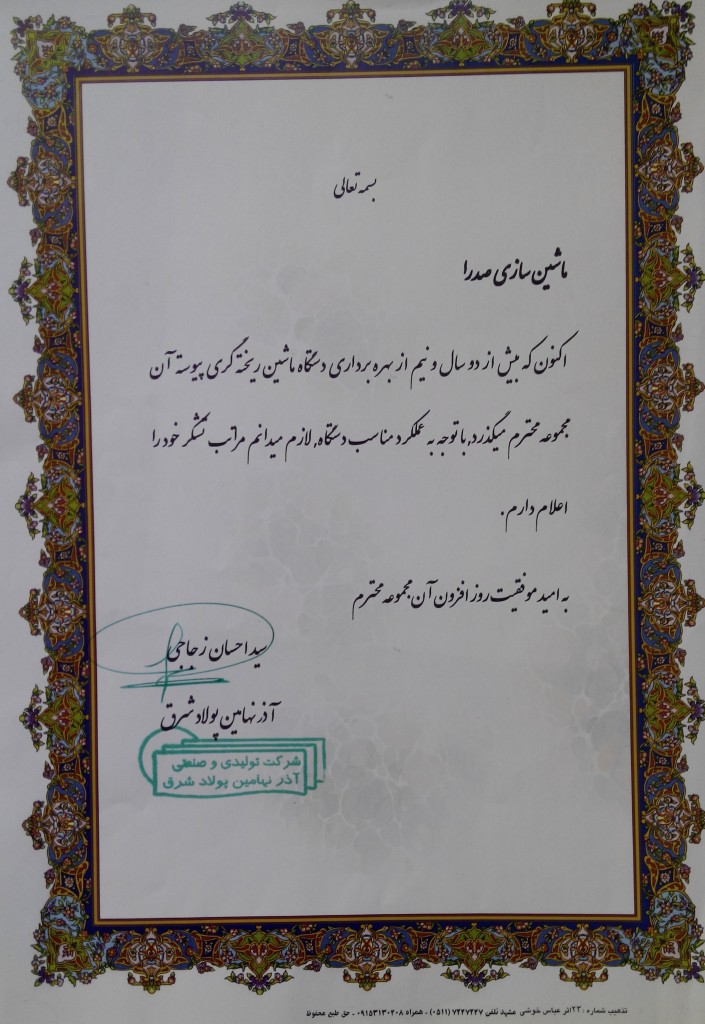 بسمه تعالی
ماشین سازی صدرا
اکنون که بیش از دو سال و نیم از بهره برداری دستگاه ماشین ریخته گری پیوسته آن
مجموعه محترم میگذرد, با توجه به عملکرد مناسب دستگاه, لازم میدانم مراتب تشکر خود را
اعلام دارم.
به امید موفقیت روز افزون آن مجموعه محترم
سید احسان زجاجی
آذر نهامین پولاد شرق
شرکت تولیدی و صنعتی
آذر نهامین پولاد شرق
تذهیب شماره : ۲۳ اثر عباس خوشی مشهد تلفن ۷۲۴۷۲۴۷ (۰۵۱۱) - همراه ۰۹۱۵۳۱۳۰۲۰۸ - حق طبع محفوظ